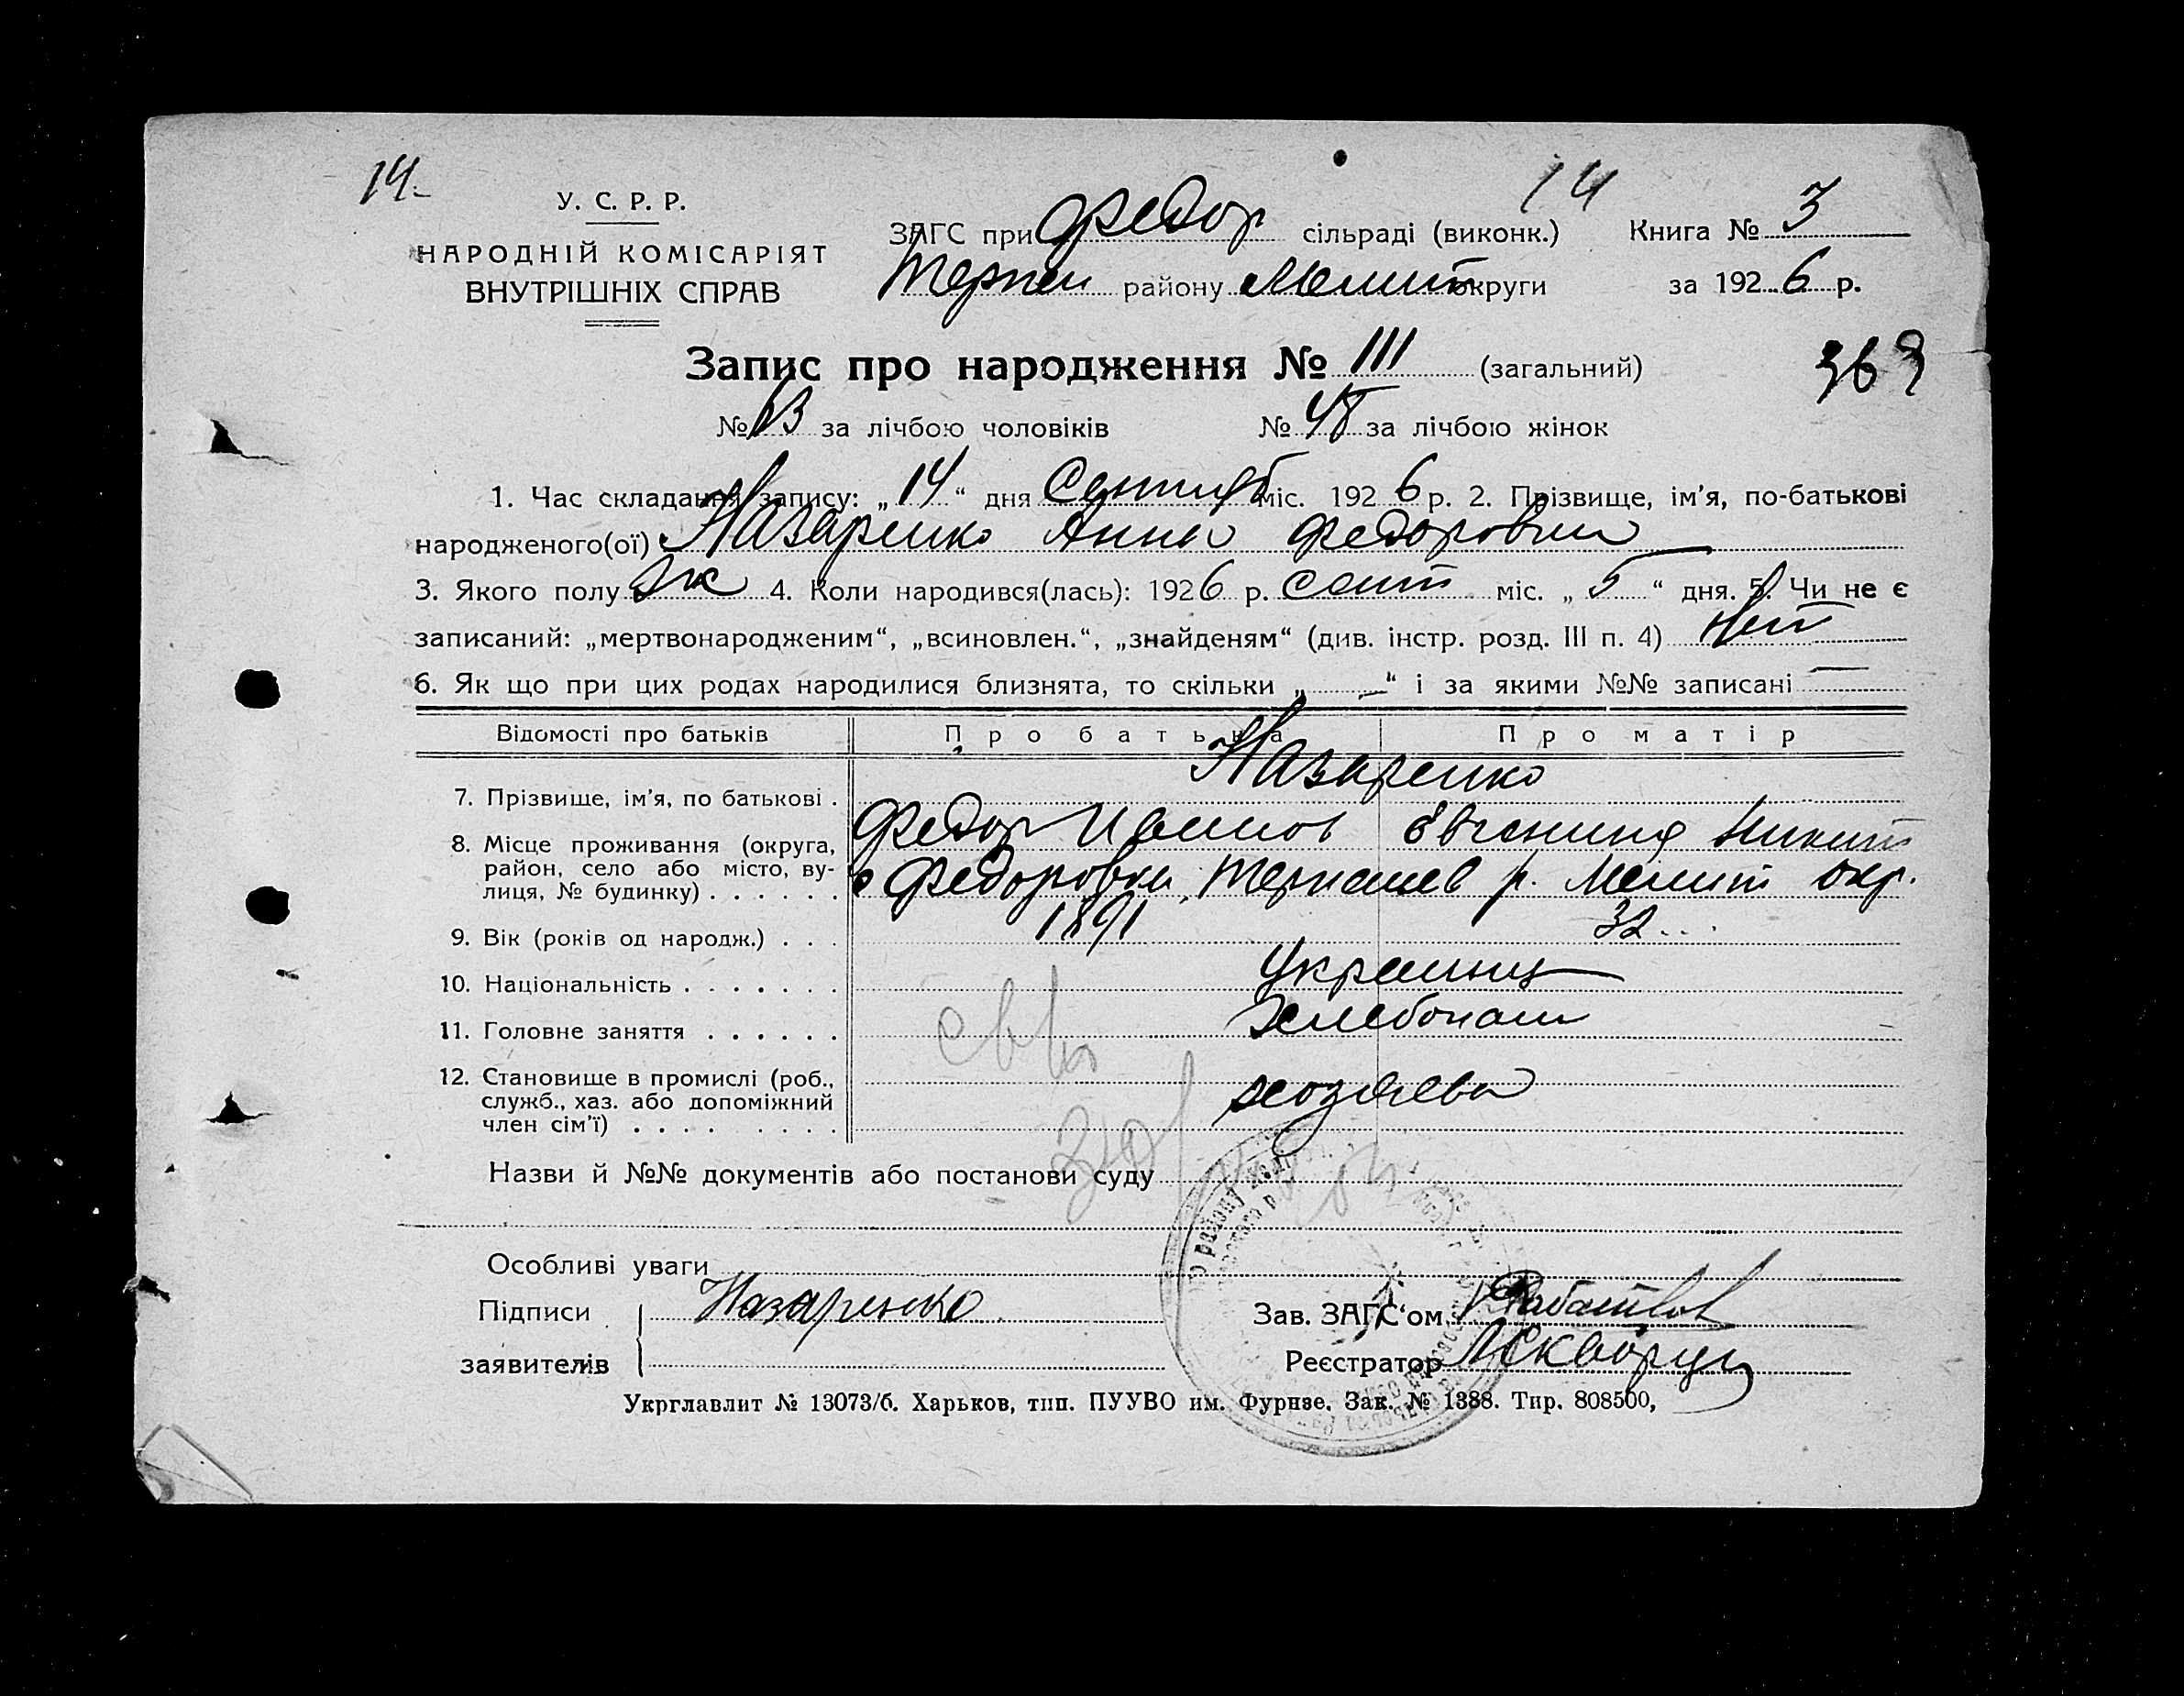 14
14
У. С. Р. Р.
НАРОДНІЙ КОМІСАРІЯТ
ВНУТРІШНІХ СПРАВ
ЗАГС при Федор сільраді (виконк.) Книга № 3
Терпен району Мелит округи за 1926 р.
Запис про народження № 111 (загальний)
369
№ 63 за лічбою чоловіків № 48 за лічбою жінок
1. Час складання запису: „14“ дня Сентяб міс. 1926 р. 2. Прізвище, ім’я, по-батькові
народженого(ої) Назаренко Анна Федоровна
3. Якого полу ж 4. Коли народився(лась): 1926 р. Сент міс. „5“ дня. 5. Чи не є
записаний: „мертвонародженим“, „всиновлен.“, „знайденям“ (див. інстр. розд. III п. 4) Нет
6. Як що при цих родах народилися близнята, то скільки „—“ і за якими №№ записані —
Відомості про батьків Про батька Про матір
Назаренко
7. Прізвище, ім’я, по батькові .
Федор Иванов Евгения Никит
8. Місце проживання (округа, район, село або місто, вулиця, № будинку) . . . . . .
с Федоровка, Терпен р. Мелит окр.
9. Вік (років од народж.) . . . 1891 32
10. Національність . . . . . . . Украинц
11. Головне заняття . . . . . . Хлебопаш
12. Становище в промислі (роб., служб., хаз. або допоміжний член сім’ї) . . . . . . . . хозяева
Назви й №№ документів або постанови суду
Особливі уваги
Підписи Назаренко Зав. ЗАГС‘ом
заявителів Реєстратор Скворц
Укрглавлит № 13073/б. Харьков, тип. ПУУВО им. Фурнзе. Зак. № 1388. Тир. 808500,